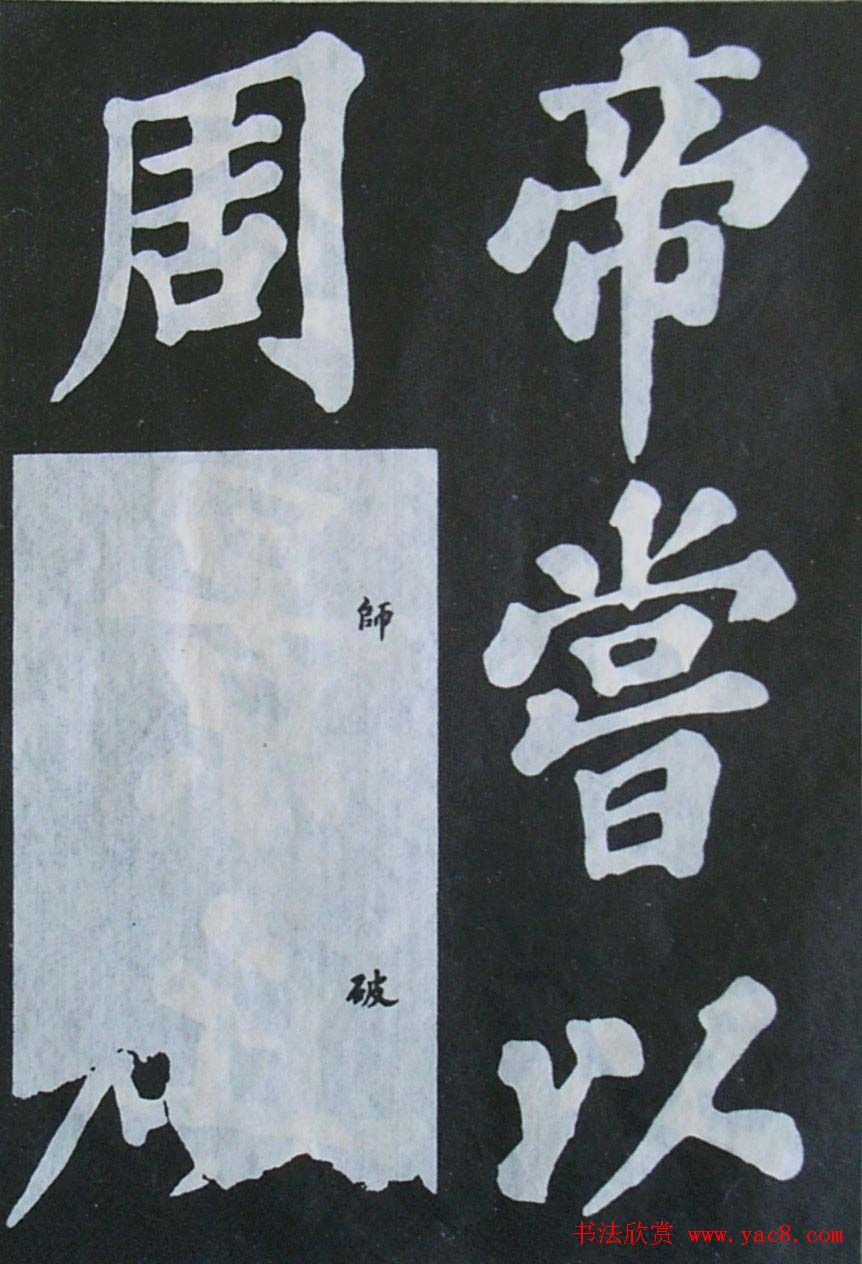 帝嘗以
周
師
破
书法欣赏 www.yac8.com